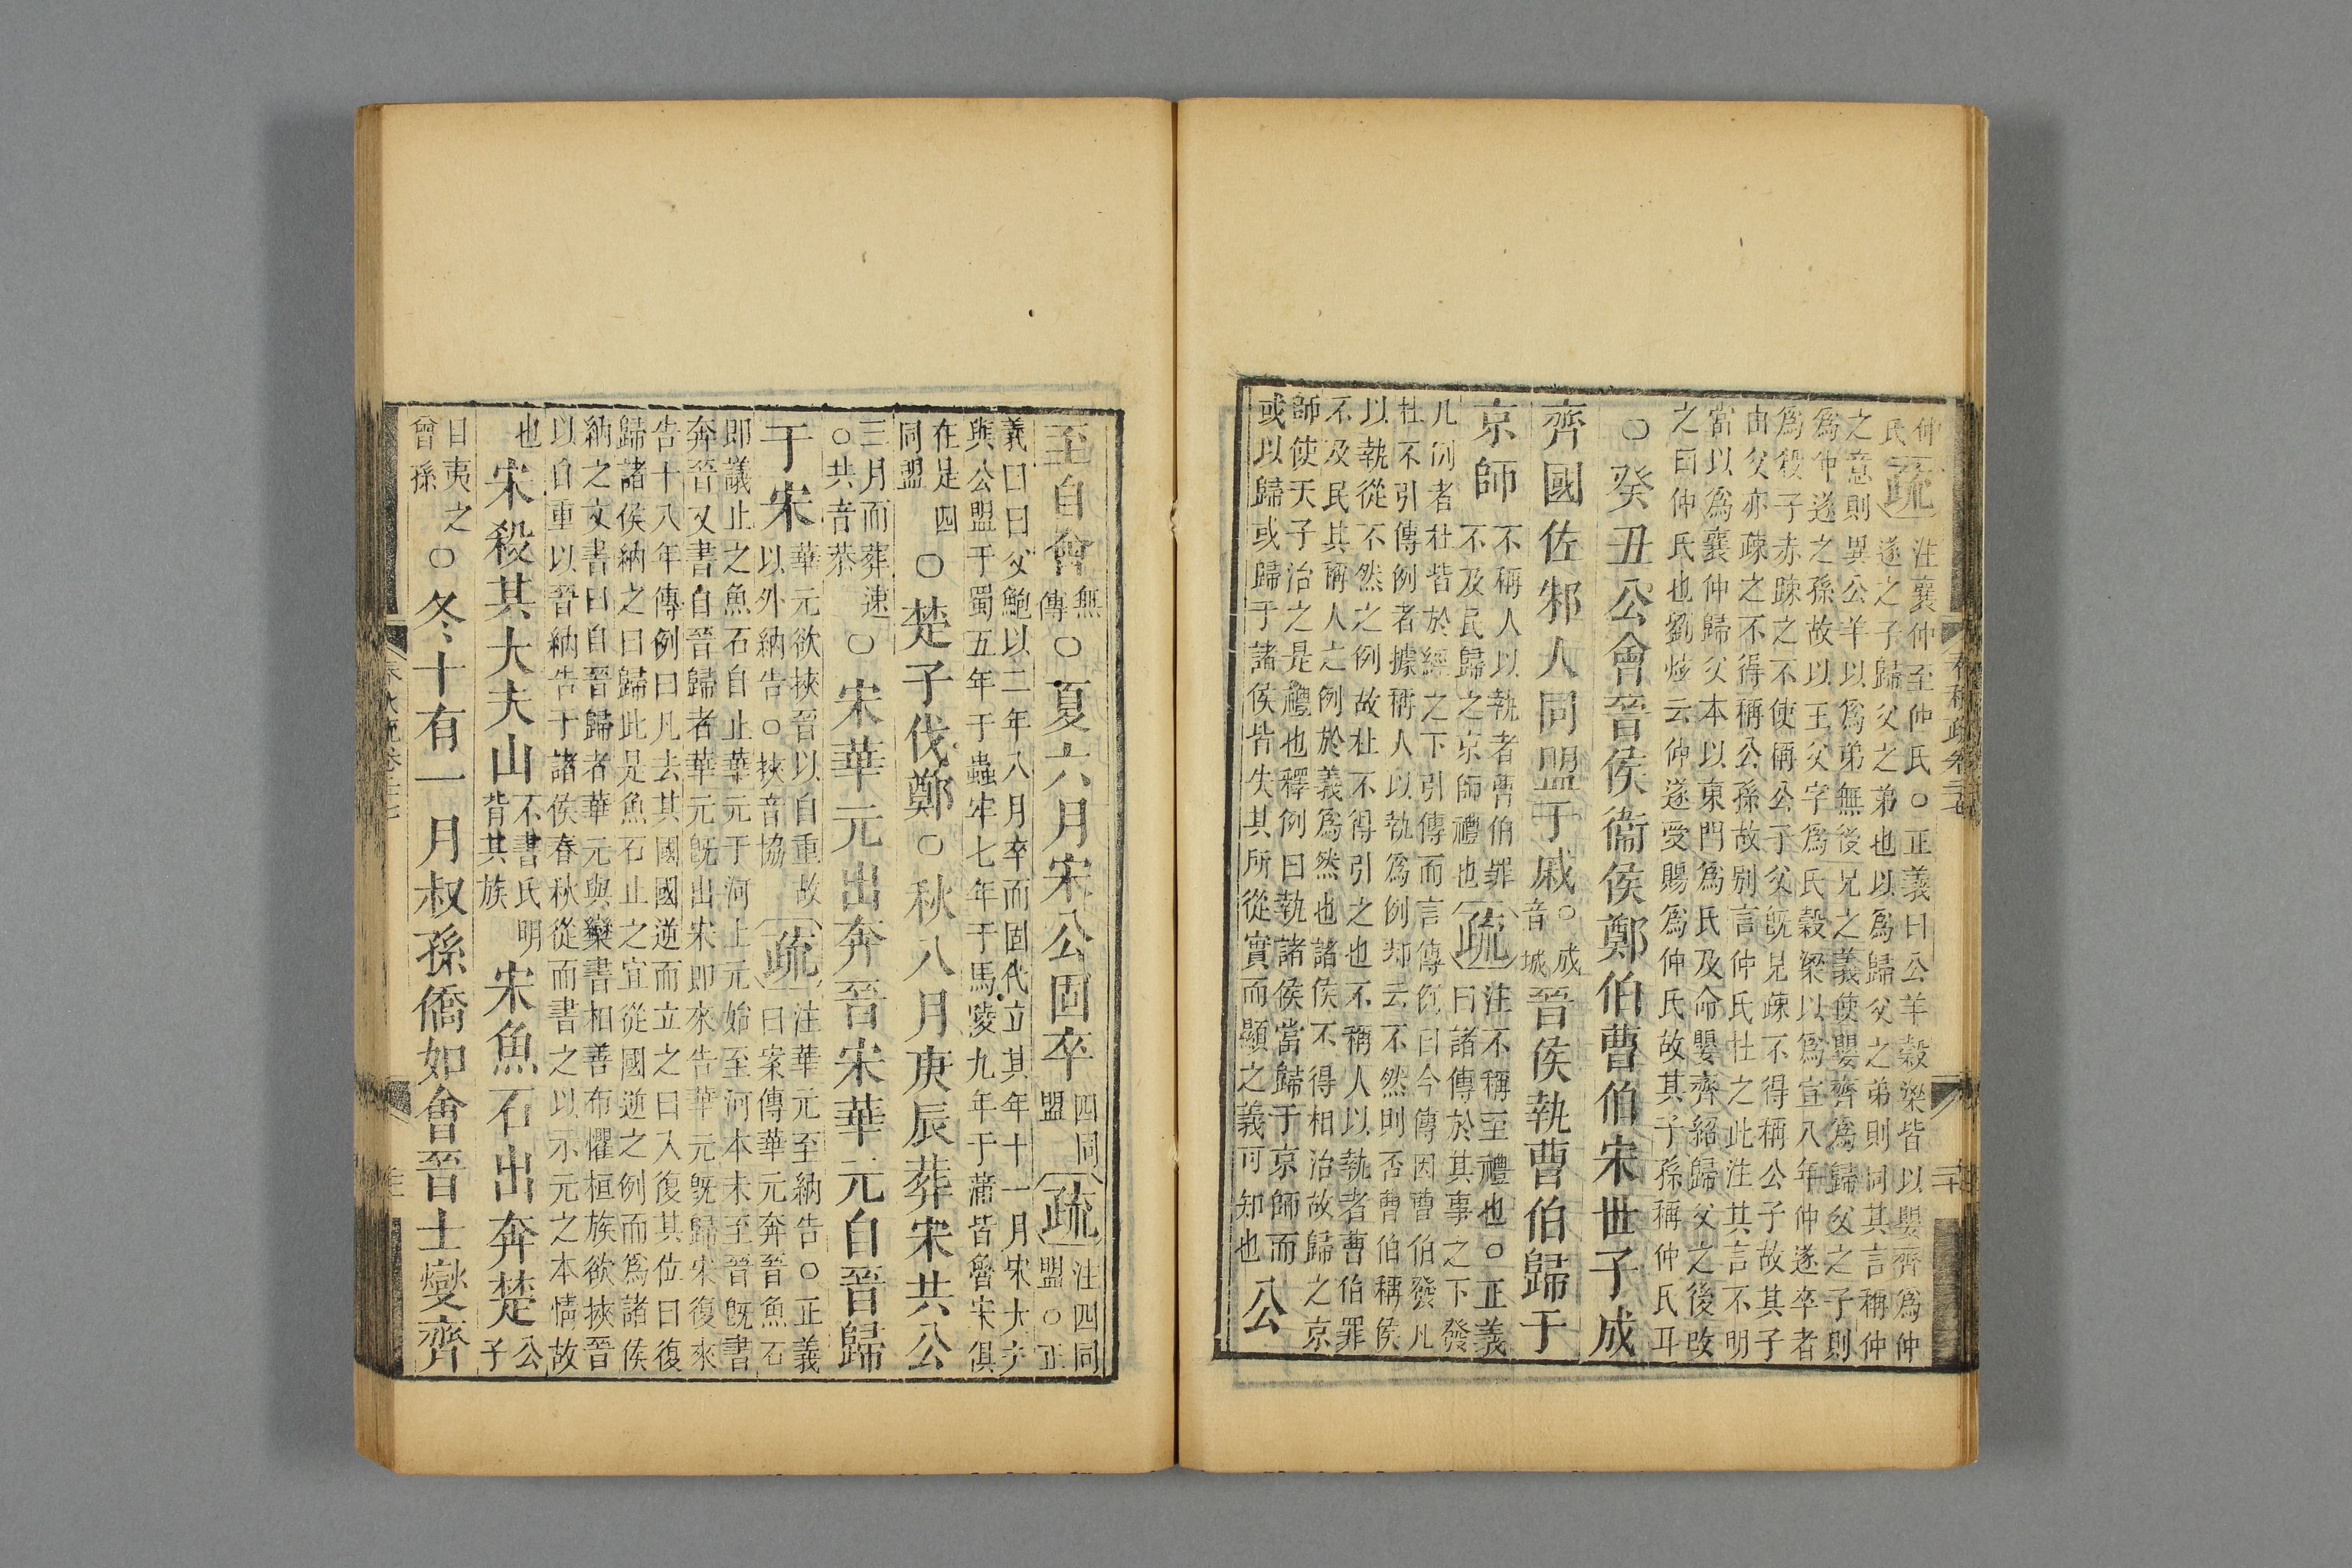 仲
氏
疏
注襄仲至仲氏○正義曰公羊榖梁皆以嬰齊爲仲
遂之子歸父之弟也以爲歸父之弟則同其言稱仲
之意則異公羊以爲弟無後兄之義使嬰齊爲歸父之子則
爲仲遂之孫故以王父字爲氏榖梁以爲宣八年仲遂卒者
爲殺子赤疎之不使稱公子父旣見疎不得稱公子故其子
由父亦疎之不得稱公孫故別言仲氏杜之此注其言不明
當以爲襄仲歸父本以東門爲氏及命嬰齊紹歸父之後改
之曰仲氏也劉炫云仲遂受賜爲仲氏故其子孫稱仲氏耳
○癸丑公會晉侯衞侯鄭伯曹伯宋世子成
齊國佐邾人同盟于戚
○成
音城
晉侯執曹伯歸于
京師
不稱人以執者曹伯罪
不及民歸之京師禮也
疏
注不稱至禮也○正義
曰諸傳於其事之下發
凡例者杜皆於經之下引傳而言傳例曰今傳因曹伯發凡
杜不引傳例者據稱人以執爲例却云不然則否曹伯稱侯
以執從不然之例故杜不得引之也不稱人以執者曹伯罪
不及民其稱人之例於義爲然也諸侯不得相治故歸之京
師使天子治之是禮也釋例曰執諸侯當歸于京師而
或以歸或歸于諸侯皆失其所從實而顯之義可知也
公
至自會
無
傳
○夏六月宋公固卒
四同
盟
疏
注四同
盟○正
義曰固父鮑以二年八月卒而固代立其年十一月宋大夫
與公盟于蜀五年于蟲牢七年于馬陵九年于蒲皆魯宋俱
在是四
同盟
○楚子伐鄭○秋八月庚辰葬宋共公
三月而葬速
○共音恭
○宋華元出奔晉宋華元自晉歸
于宋
華元欲挾晉以自重故
以外納告○挾音協
疏
注華元至納告○正義
曰案傳華元奔晉魚石
即議止之魚石自止華元于河上元始至河本未至晉旣書
奔晉又書自晉歸者華元旣出宋即來告華元旣歸宋復來
告十八年傳例曰凡去其國國逆而立之曰入復其位曰復
歸諸侯納之曰歸此是魚石止之宜從國逆之例而爲諸侯
納之文書曰自晉歸者華元與欒書相善布懼桓族欲挾晉
以自重以晉納告于諸侯春秋從而書之以示元之本情故
也
宋殺其大夫山
不書氏明
背其族
宋魚石出奔楚
公
子
目夷之
曾孫
○冬十有一月叔孫僑如會晉士燮齊